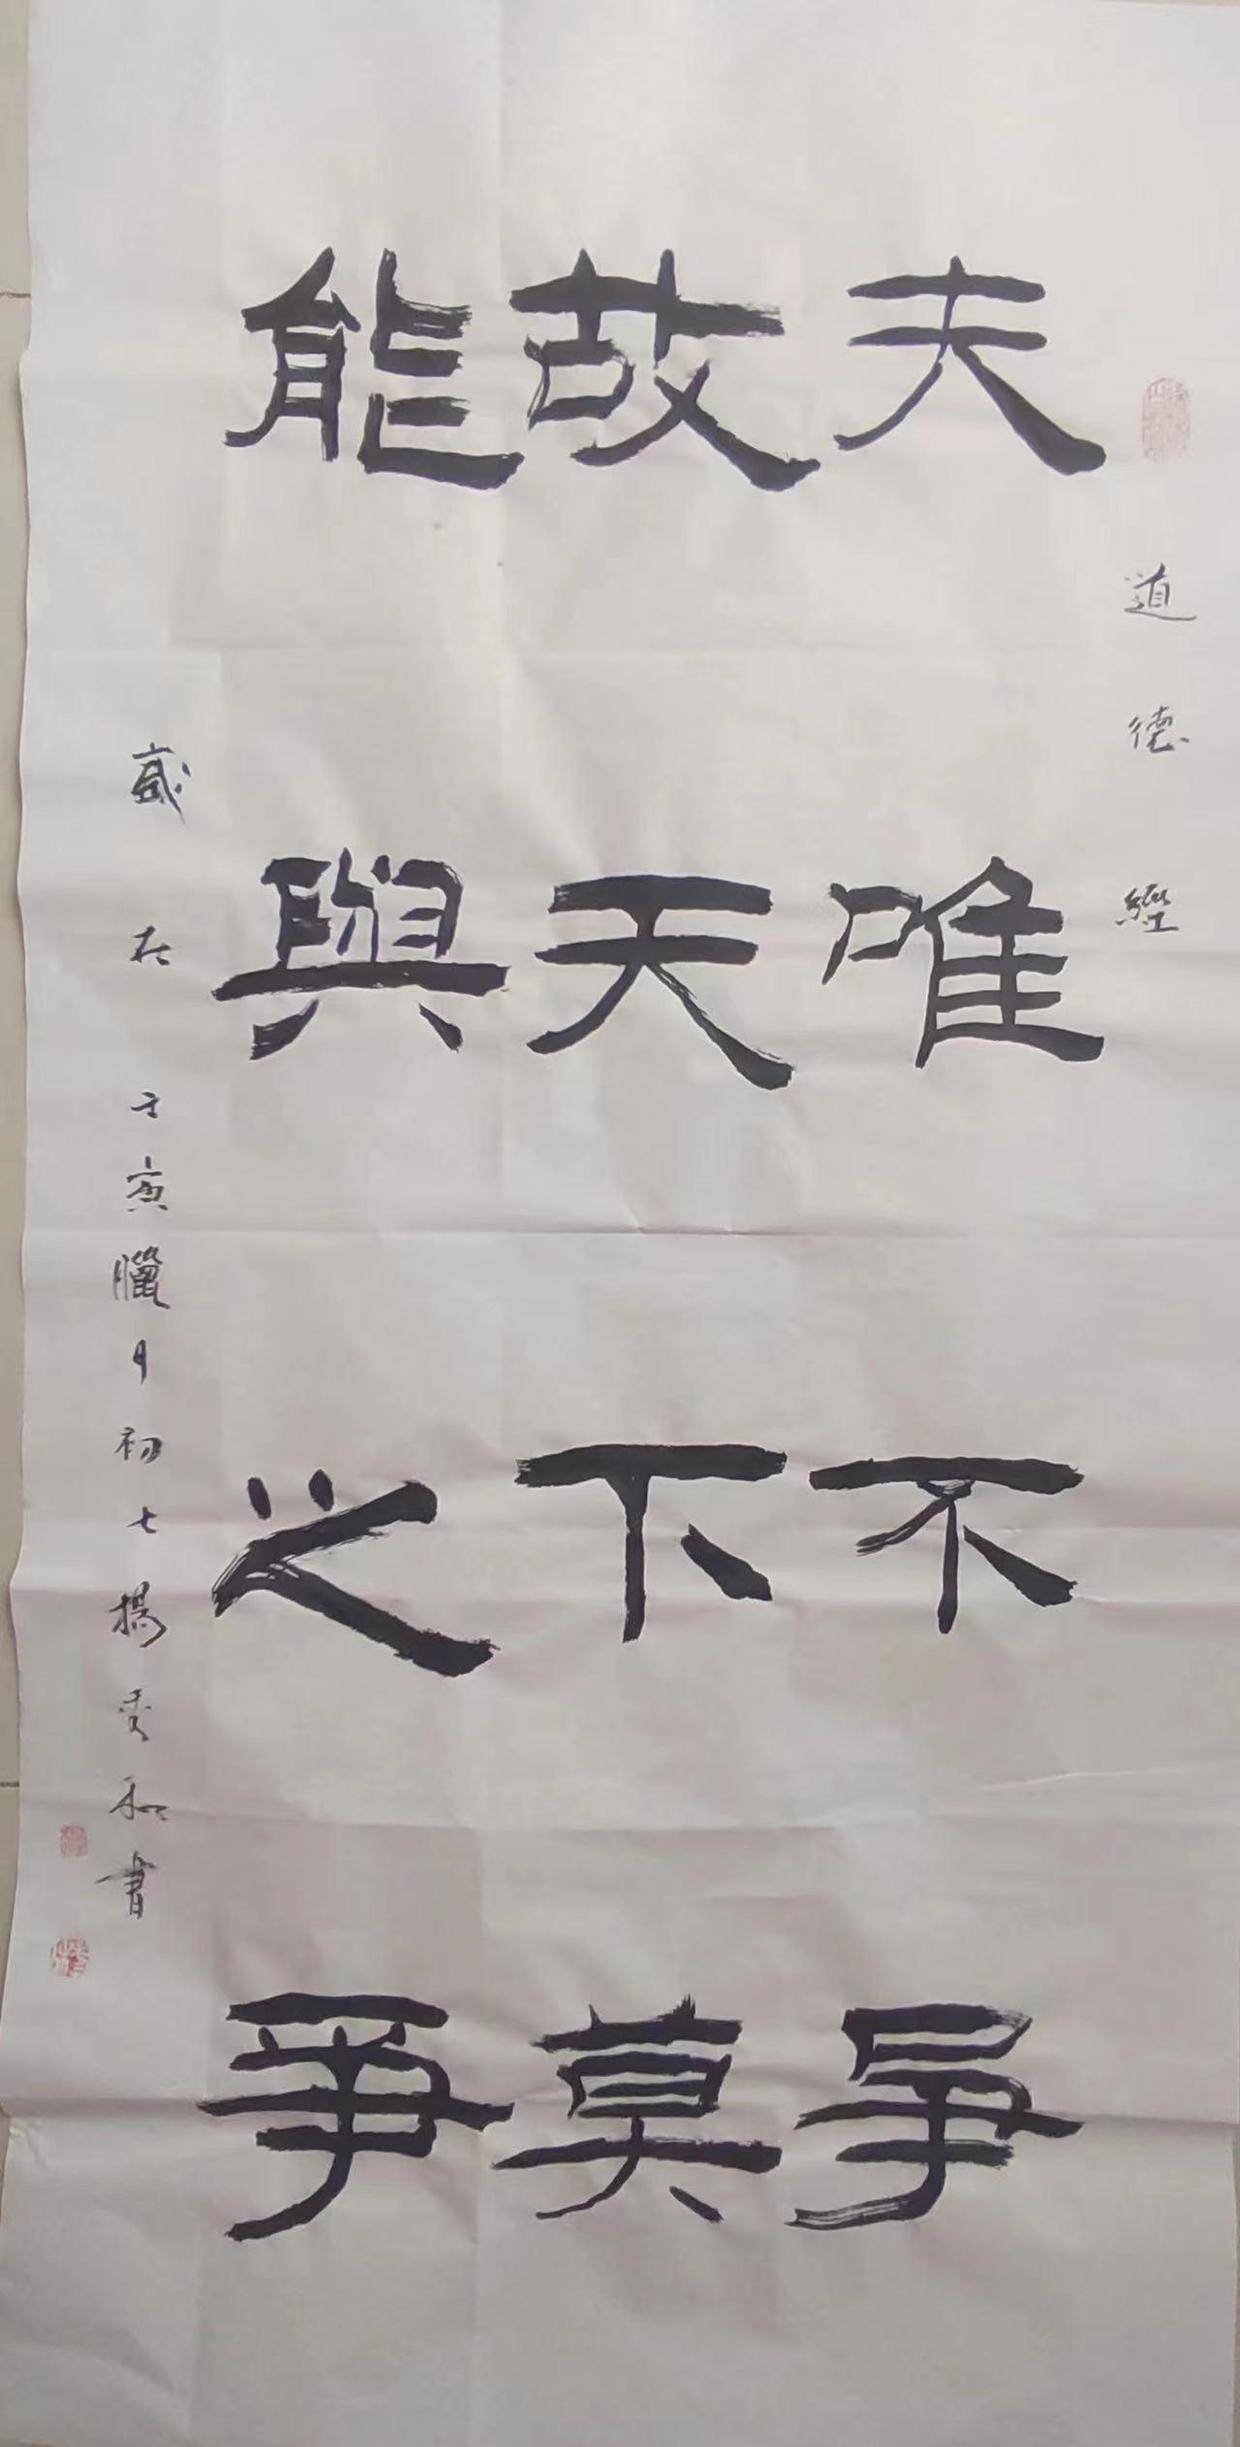 道德經
夫唯不爭
故天下莫
能與之爭
歲在壬寅臘月初七楊秀和書